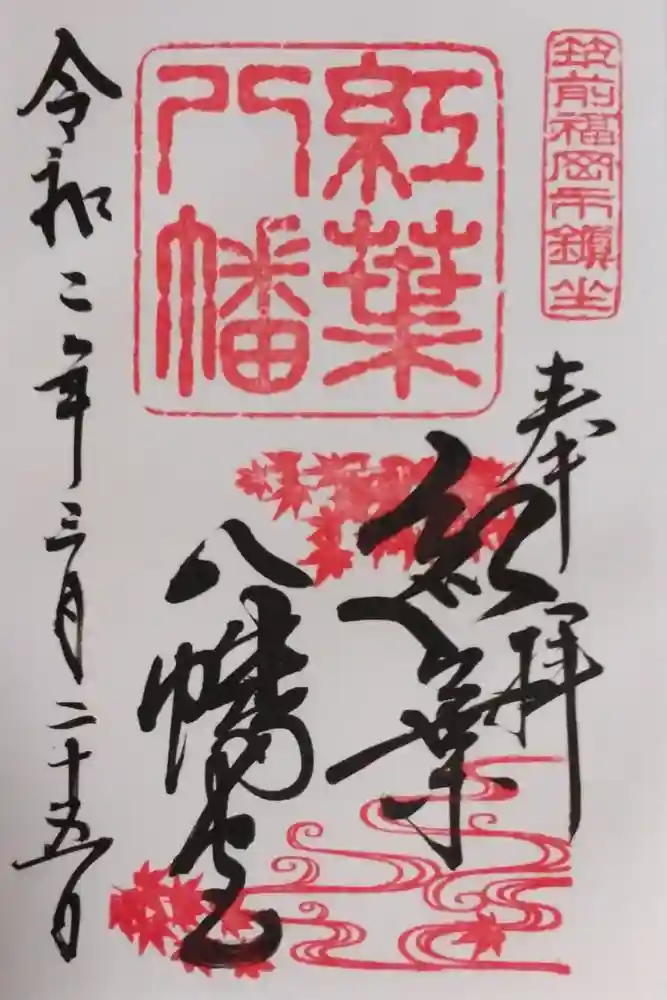 筑前福岡市鎮坐
奉拝
紅葉
八幡
紅葉
八幡宮
令和二年三月二十五日